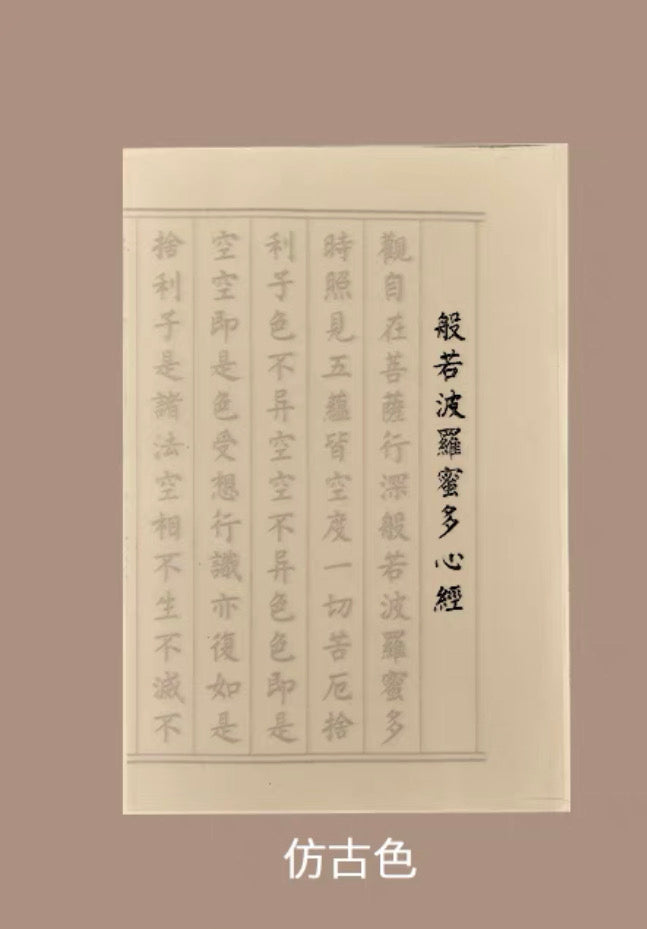 般若波羅蜜多心經
觀自在菩薩行深般若波羅蜜多
時照見五蘊皆空度一切苦厄捨
利子色不异空空不异色色即是
空空即是色受想行識亦復如是
捨利子是諸法空相不生不滅不
仿古色